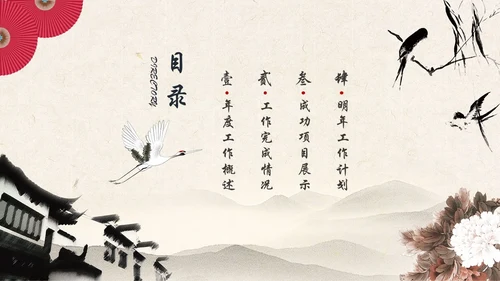 目录
DIRECTORY
壹·年度工作概述
贰·工作完成情况
叁·成功项目展示
肆·明年工作计划